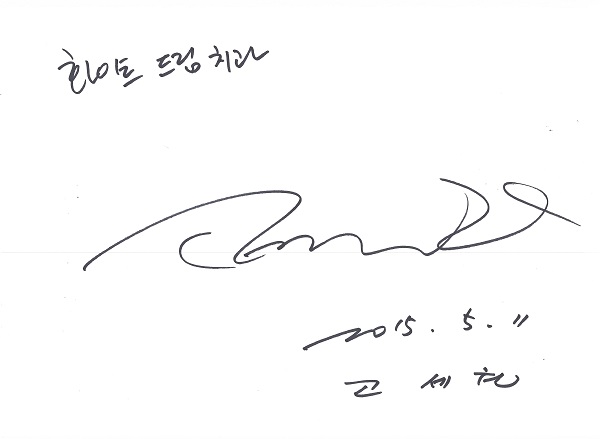 화이트 드림 치과
2015. 5. 11
고 세 원